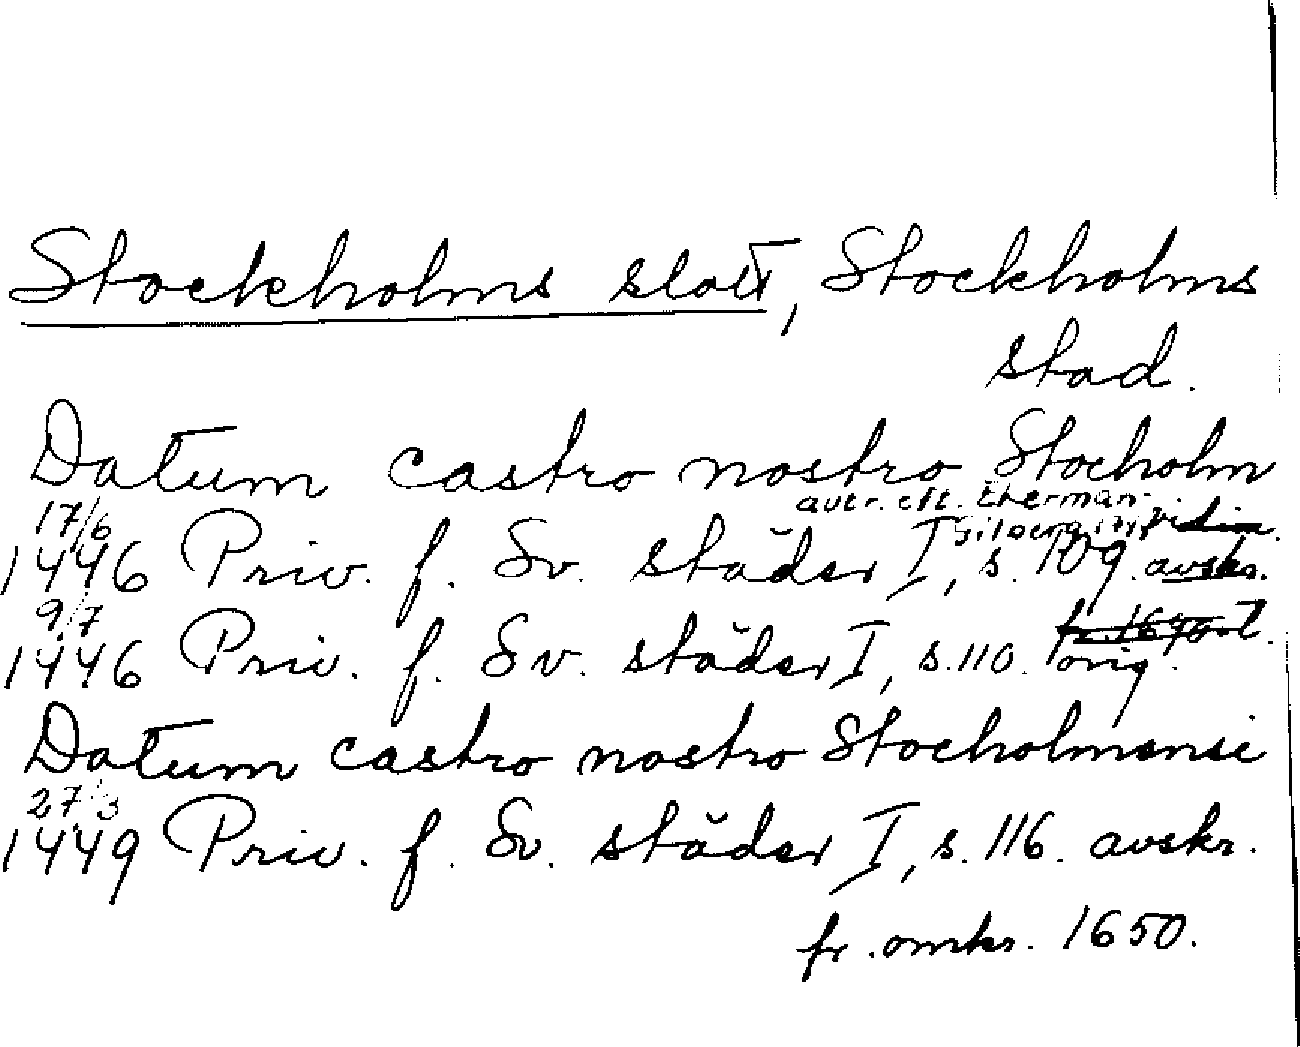 Stockholms slott, Stockholms
stad.
Datum castro nostro Stocholm
17/6 avtr. eft. Ekerman
1446 Priv. f. Sv. städer I, s. 109. avskr.
9/7
1446 Priv. f. Sv. städer I, s. 110. orig.
Datum castro nostro Stocholmensi
27/3
1449 Priv. f. Sv. städer I, s. 116. avskr.
fr. omkr. 1650.